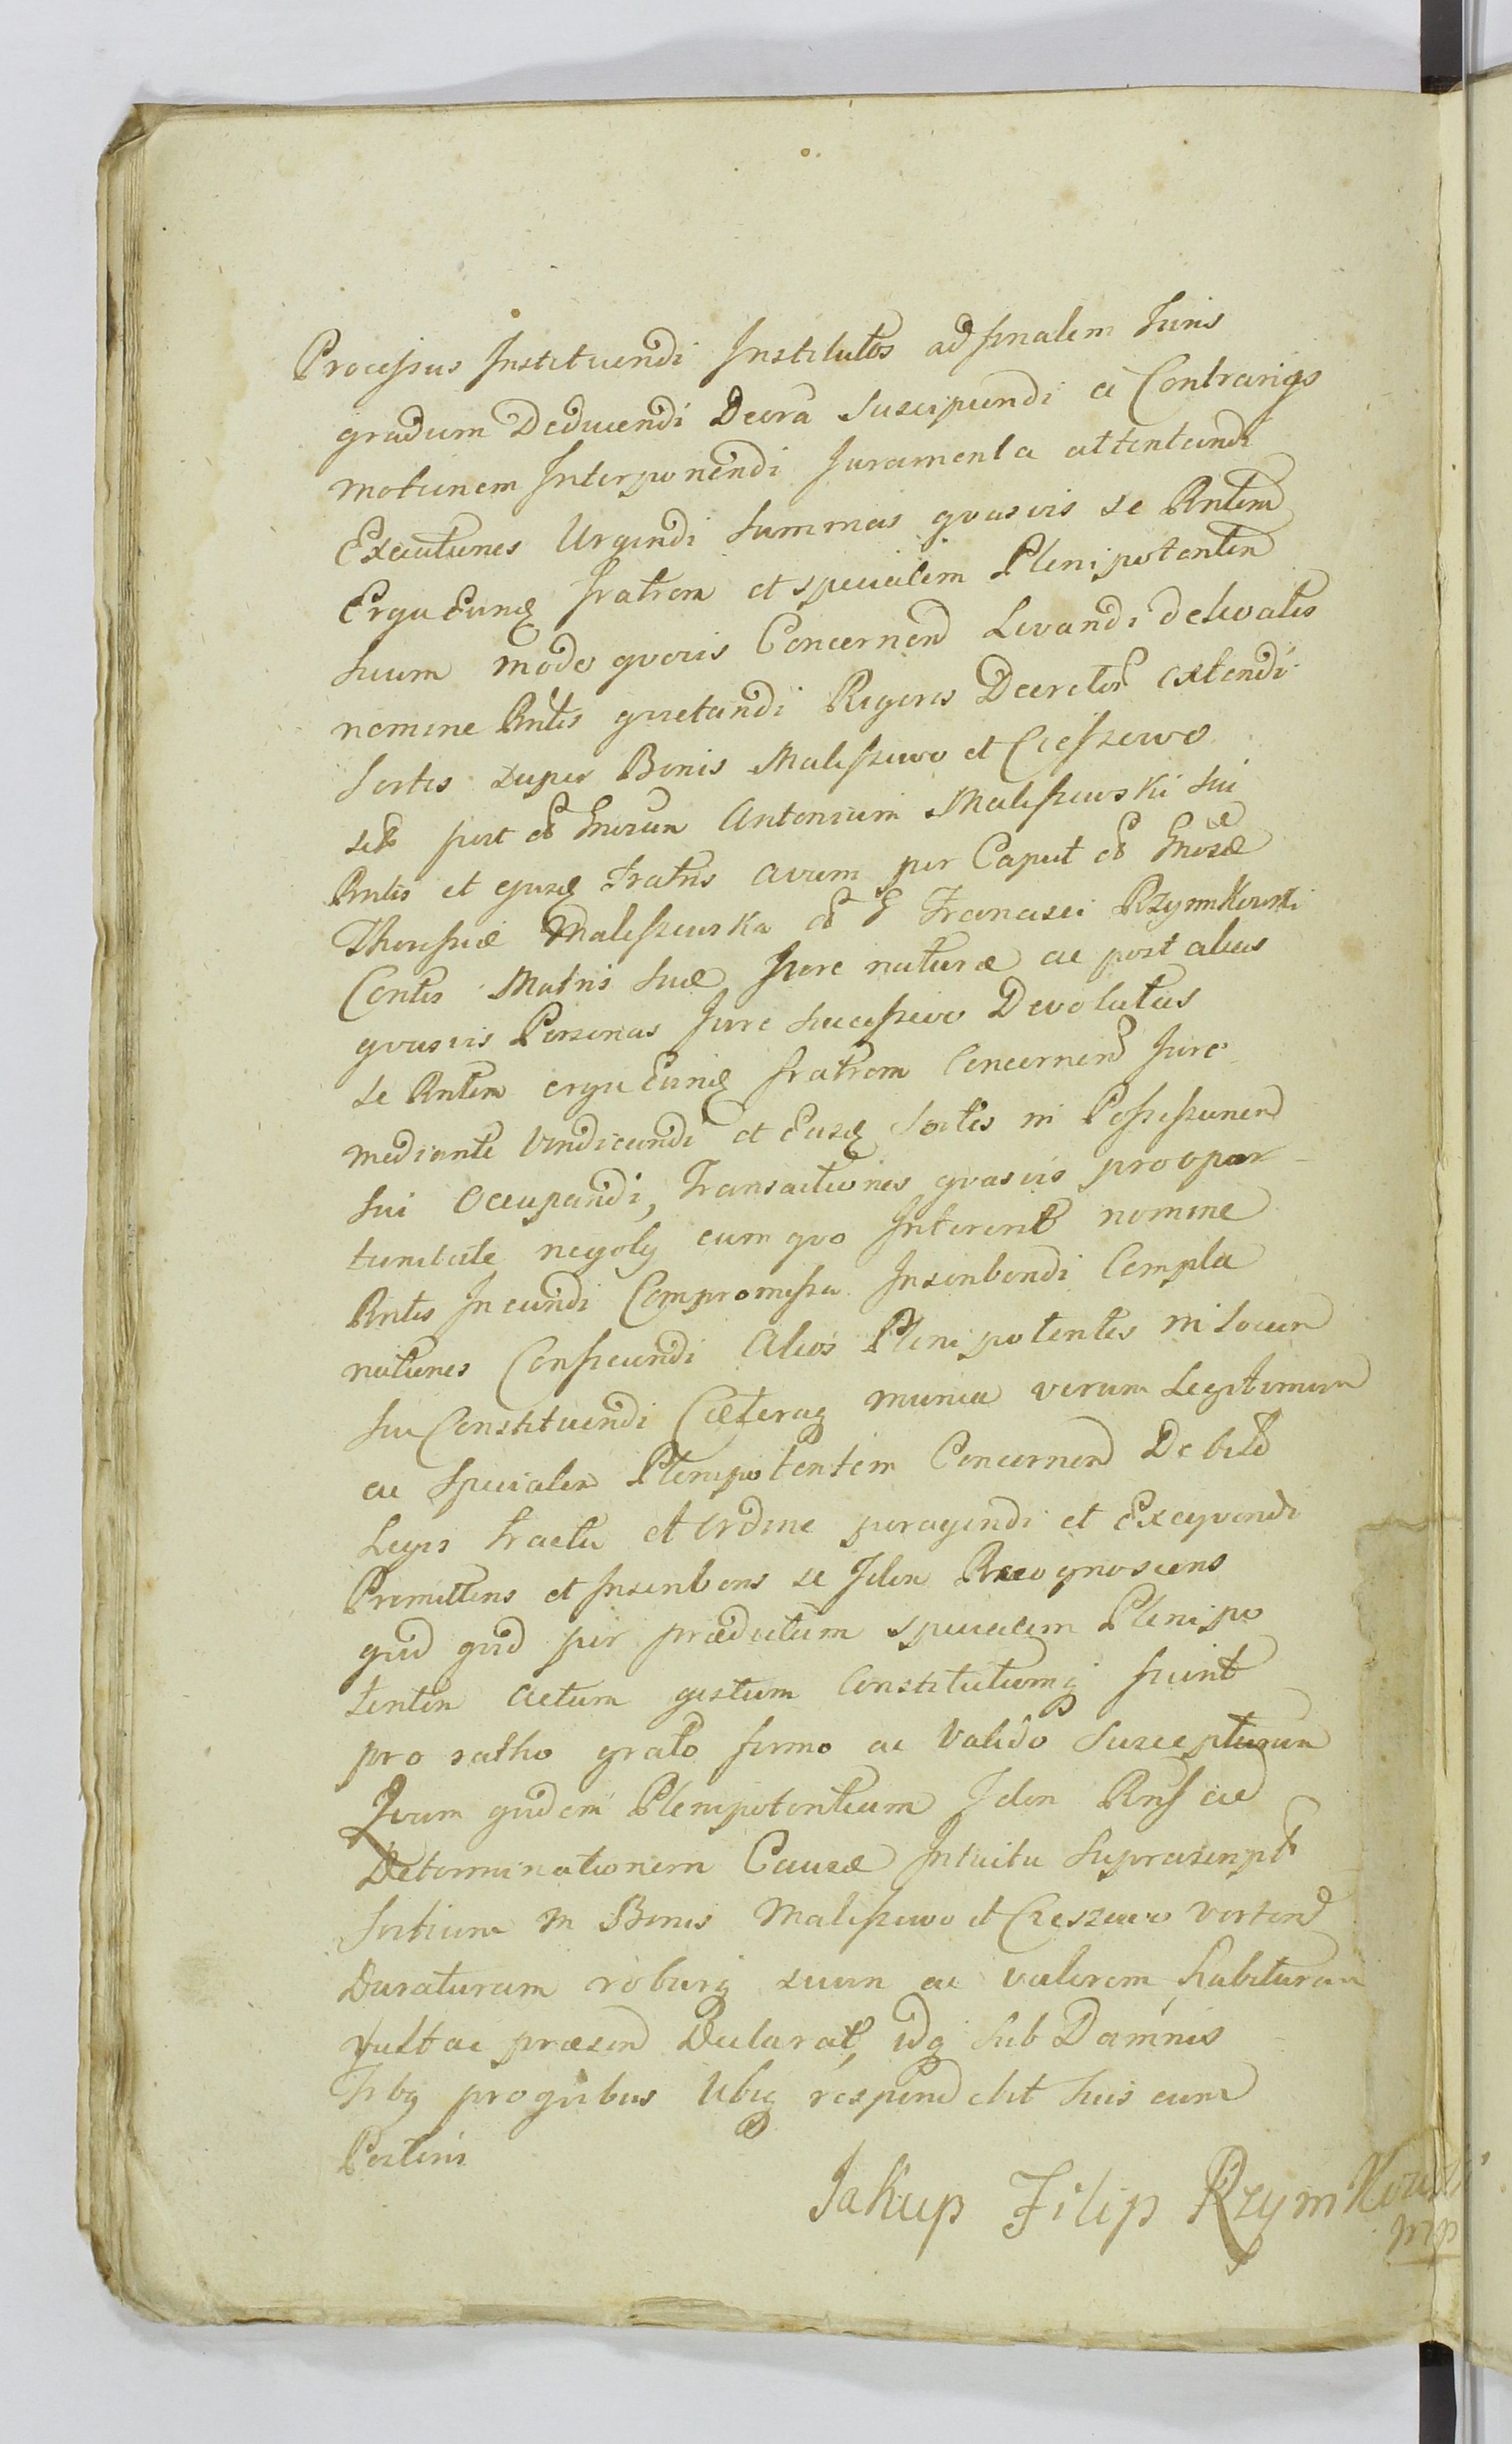 Processus Instituendi Institutos ad finalem Iuris
gradum Deducendi Decra Suscipiendi a Contrarijs
motionem Interponendi Iuramenta attentandi
Executiones Urgendi Summas quasvis se Rntem
Ergu Eunq fratrem et specialem Plenipotentem
suum modo quovis Concernen Levandi de levatis
nomine Rntis quietandi Rigores Decretor extendi
Sortes super Bonis Maleszewo et Czeszewo
post Gnosum Antonium Maleszewski sui
Rntis et ejusq Fratris avum per Caput Gnosæ
Theressiæ Maleszewska G Francisci Rzymkowski
Contis Matris suæ Iure naturæ ac post alias
quasvis Personas Iure successivo Devolutas
se Rntem ergu Eunq fratrem Concernen Iure
mediante Vindicandi et Easq Sortes in Possessionem
sui Occupandi, Transactiones quasvis pro oppor-
tunitate negotij cum quo Intererit nomine
Rntis Ineundi Compromissa Inscribendi Compla
nationes Conficiendi Alios Plenipotentes in locum
sui Constituendi Cæteraq munia verum Legitimum
ac Specialem Plenipotentem Concernen Debito
Legis tractu et Ordine peragendi et Exequendi
Promittens et Inscribens se Idem Recognoscens
quid quid per prædictum specialem Plenipo
tentem actum gestum Constitutumq fuerit
pro ratho grato firmo ac Valido Suscepturum
Quam quidem Plenipotentiam Idem Rns ad
Determinationem Causæ Intuitu Suprascript
Sortium in Bonis Maleszewo et Czeszewo verten
Duraturam roburq suum ac valorem habituram
Vult ac præsen Declarat, idq Sub Damnis
pro quibus Ubiq respondebit Suis cum
Posteris
Jakup Filip Rzymkowski
mp